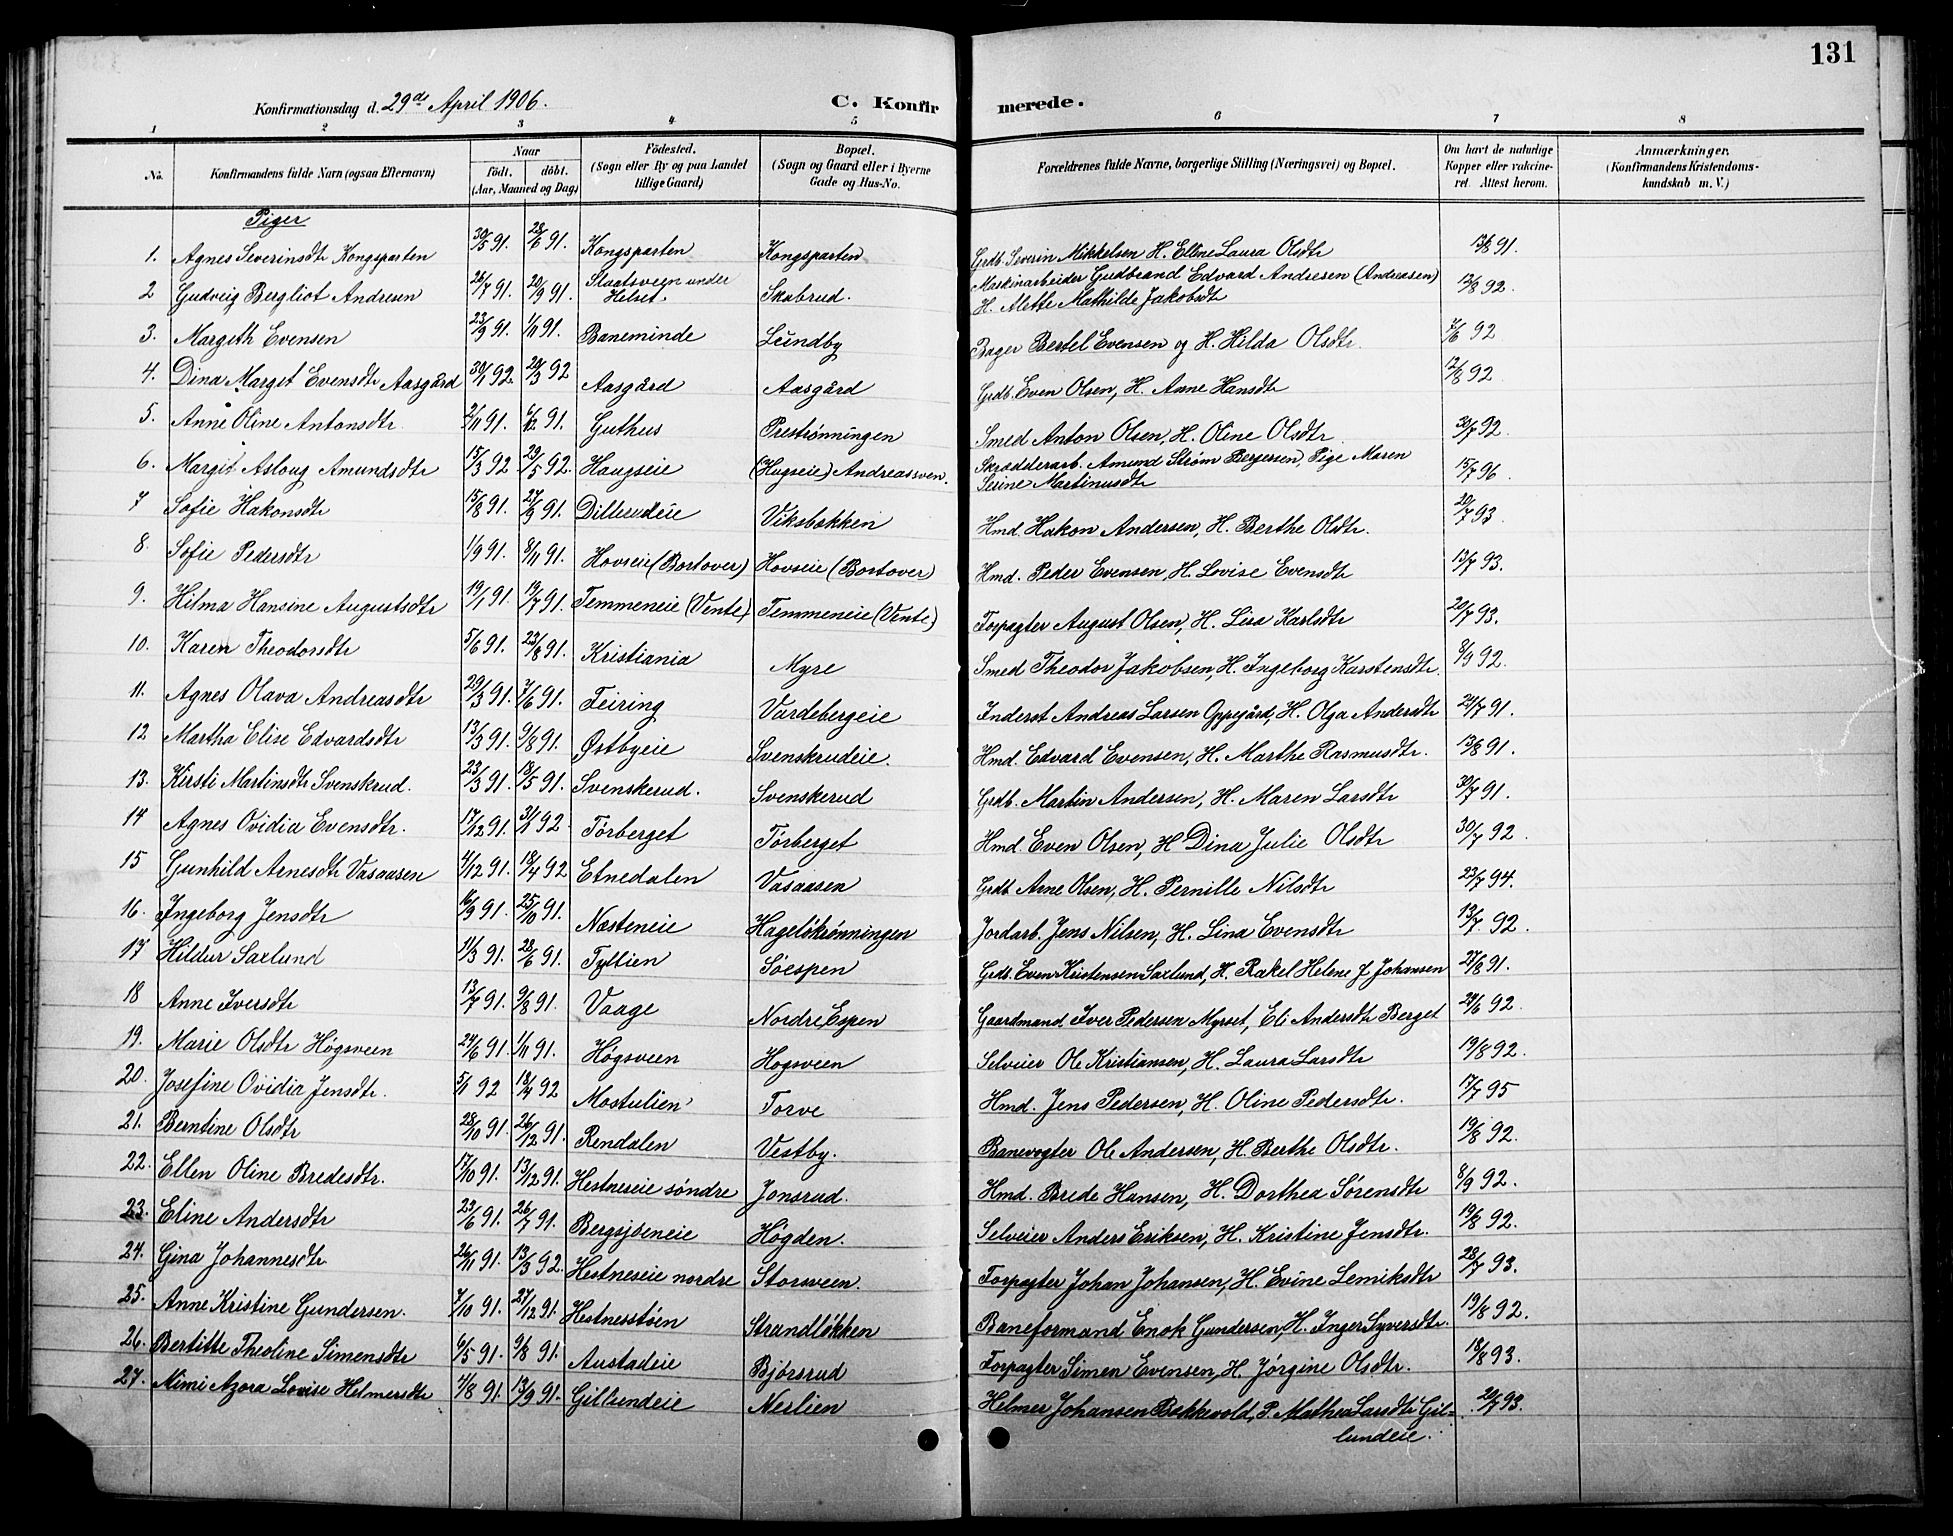 131
Konfirmationsdag d. 29de April 1906. C. Konfirmerede.
1 2 3 4 5 6 7 8
No. Konfirmandens fulde Navn (ogsaa Efternavn) Naar født. døbt. (Aar, Maaned og Dag) Fødested. (Sogn eller By og paa Landet tillige Gaard) Bopæl. (Sogn og Gaard eller i Byerne Gade og Hus-No. Forældrenes fulde Navne, borgerlige Stilling (Næringsvei) og Bopæl. Om havt de naturlige Kopper eller vakcineret. Attest herom. Anmærkninger. (Konfirmandens Kristendomskundskab m. V.)
Piger
1. Agnes Severinsdtr Kongsparten 30/5 91. 28/6 91. Kongsparten Kongsparten Grdb. Severin Mikkelsen H. Ellene Laura Olsdtr 13/8 91.
2 Gudveig Bergliot Andresen 26/7 91. 20/9 91. Staatsveen under Helset. Skabrud. Maskinarbeider Gudbrand Edvard Andresen (Andreasen) H. Alette Mathilde Jakobsdtr 12/8 92.
3. Margeth Evensen 23/9 91. 1/11 91. Baneminde Lundby Bager Bertel Evensen og H. Hilda Olsdtr. 7/6 92
4. Dina Marget Evensdtr Aasgård 30/1 92. 20/3 92 Aasgård Aasgård Grdb. Even Olsen, H. Anne Hansdtr 12/8 92
5. Anne Oline Antonsdtr. 2/11 91. 6/12 91. Guthus Prestrønningen Smed Anton Olsen, H. Oline Olsdtr 30/7 92.
6. Margit Aslaug Amundsdtr 15/3 92 29/5 92. Haugseie (Hugseie) Andreassven. Skrædderarb. Amund Strøm Bergersen, Pige Maren Serine Martinusdtr 15/7 96.
7 Sofie Hakonsdtr 15/8 91. 27/9 91. Dillerudeie Viksbakken Hmd. Hakon Andersen, H. Berthe Olsdtr. 20/7 93
8. Sofie Pedersdtr 1/9 91. 8/11 91. Hovseie (Bortover) Hovseie (Bortover) Hmd. Peder Evensen, H. Lovise Evensdtr 13/7 93.
9. Hilma Hansine Augustsdtr 19/1 91. 19/7 91. Temmeneie (Vente) Temmeneie (Vente) Forpagter August Olsen, H. Lisa Karlsdtr 20/7 93.
10. Karen Theodorsdtr 5/6 91. 23/8 91. Kristiania Myre Smed Theodor Jakobsen, H. Ingeborg Karstensdtr. 8/9 92.
11. Agnes Olava Andreasdtr 29/3 91. 7/6 91. Feiring Vardebergeie Inderst Andreas Larsen Oppegård, H. Olga Andersdtr 24/7 91.
12 Martha Elise Edvardsdtr 13/3 91. 9/8 91. Østbyeie Svenskrudeie. Hmd. Edvard Evensen, H. Marthe Rasmusdtr. 13/8 91.
13. Kirsti Martinsdtr Svenskrud. 23/3 91. 18/5 91. Svenskerud. Svenskerud Grdb. Martin Andersen, H. Maren Larsdtr 30/7 91.
14 Agnes Ovidia Evensdtr. 17/12 91. 31/1 92 Tørberget Tørberget Hmd. Even Olsen, H Dina Julie Olsdtr 30/7 92.
15 Gunhild Arnesdtr Vasaasen 4/12 91. 18/4 92 Etnedalen Vasaasen Grdb Arne Olsen, H. Pernille Nilsdtr 23/7 94.
16. Ingeborg Jensdtr 16/9 91. 25/10 91. Næsteneie Hageløkrønningen Jordarb. Jens Nilsen, H. Lina Evensdtr 13/7. 92.
17 Hildur Saxlund 11/3 91. 28/6 91. Tyllien Søespen Grdb. Even Kristensen Saxlund, H. Rakel Helene J. Johansen 27/8 91.
18 Anne Iversdtr 13/7 91. 9/8 91. Vaage Nordre Espen Gaardmand Iver Pedersen Myrset, Eli Andersdtr Berget 29/6 92.
19. Marie Olsdtr Høgsveen 24/6 91. 1/11 91. Høgsveen Høgsveen Selveier Ole Kristiansen, H. Laura Larsdtr 19/8 92.
20. Josefine Ovidia Jensdtr. 5/1 92 18/4 92 Mostulien Torve Hmd. Jens Pedersen, H. Oline Pedersdtr. 17/7 95
21. Berntine Olsdtr 28/10 91. 26/12 91. Rendalen Vestby. Banevogter Ole Andersen, H. Berthe Olsdtr. 19/8 92.
22. Ellen Oline Bredesdtr. 17/10 91. 13/12 91. Hestneseie søndre Jonsrud. Hmd. Brede Hansen, H. Dorthea Sørensdtr 8/9 92.
23. Eline Andersdtr 23/6 91. 26/7 91. Bergsjøeneie Høgden. Selveier Anders Eriksen, H. Kristine Jensdtr. 19/8 92.
24. Gina Johannesdtr 26/11 91. 13/3 92. Hestneseie nordre Storsveen. Forpagter Johan Johansen, H. Evine Lemiksdtr 28/7 93.
25. Anne Kristine Gundersen. 7/10 91. 27/12 91. Hestnesstøen Strandløkken Baneformand Enok Gundersen, H. Inger Syversdtr. 19/8 92.
26. Bertitte Theoline Simensdtr 6/5 91. 9/8 91. Austadeie Bjørsrud Forpagter Simen Evensen, H. Jørgine Olsdtr. 18/8 93.
27. Mimi Azora Lovise Helmersdtr 4/8 91. 13/9 91. Gillundeie Nerlien Helmer Johansen Bakkevold, P. Mathea Larsdtr Gil- 20/7 93.
lundeie.